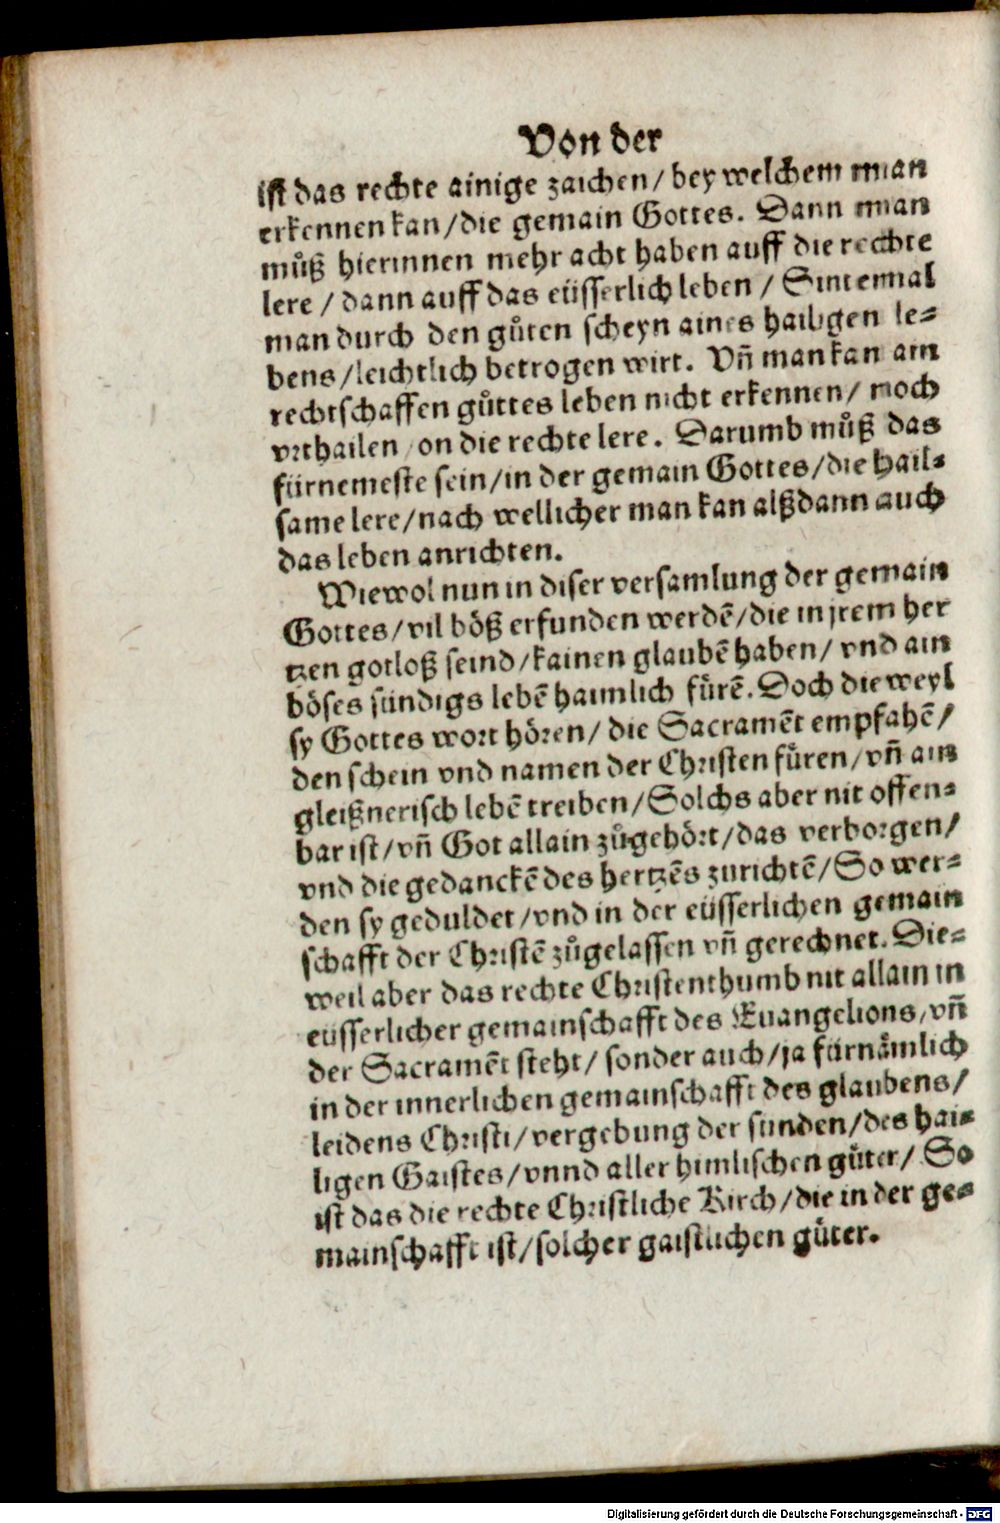 Von der
ist das rechte ainige zaichen / bey welchem man
erkennen kan / die gemain Gottes. Dann man
můß hierinnen mehr acht haben auff die rechte
lere / dann auff das eüsserlich leben / Sintemal
man durch den gůten scheyn aines hailigen le-
bens / leichtlich betrogen wirt. Vñ man kan am
rechtschaffen gůttes leben nicht erkennen / noch
vrthailen / on die rechte lere. Darumb můß das
fürnemeste sein / in der gemain Gottes / die hail-
same lere / nach wellicher man kan alßdann auch
das leben anrichten.
Wiewol nun in diser versamlung der gemain
Gottes / vil böß erfunden werdẽ / die in jrem her
tzen gotloß seind / kainen glaubẽ haben / vnd ain
böses sündigs lebẽ haimlich fürẽ. Doch die weyl
sy Gottes wort hören / die Sacramẽt empfahẽ /
den schein vnd namen der Christen füren / vñ ain
gleißnerisch lebẽ treiben / Solchs aber nit offen-
bar ist / vñ Got allain zůgehört / das verborgen /
vnd die gedanckẽ des hertzẽs zurichtẽ / So wer-
den sy geduldet / vnd in der eüsserlichen gemain
schafft der Christẽ zůgelassen vñ gerechnet. Die-
weil aber das rechte Christenthumb nit allain in
eüsserlicher gemainschafft des Euangelions / vñ
der Sacramẽt steht / sonder auch / ja fürnämlich
in der innerlichen gemainschafft des glaubens /
leidens Christi / vergebung der sünden / des hai-
ligen Gaistes / vnnd aller himlischen gůter / So
ist das die rechte Christliche Kirch / die in der ge-
mainschafft ist / solcher gaistlichen gůter.
Digitalisierung gefördert durch die Deutsche Forschungsgemeinschaft - DFG